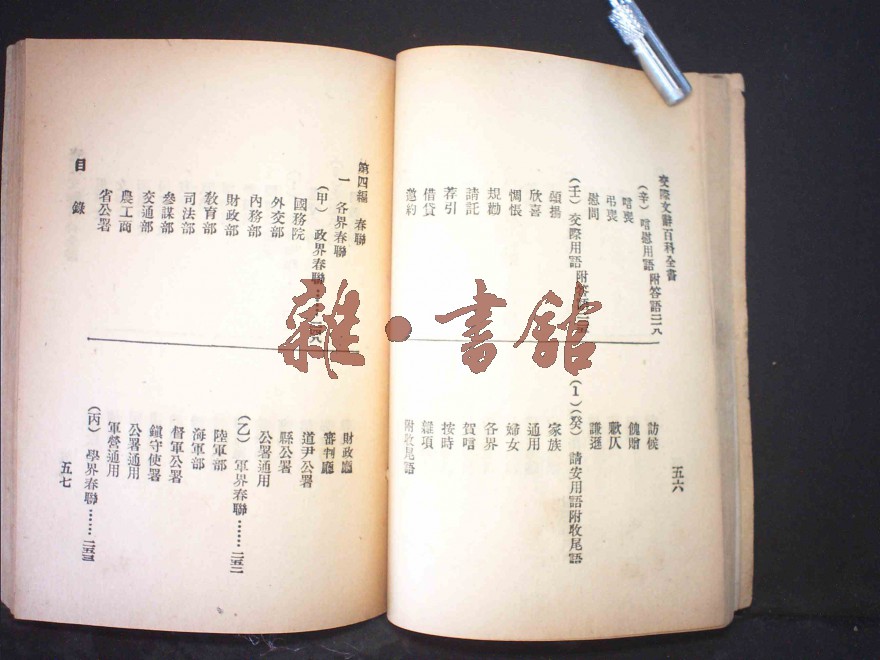 交際文辭百科全書
(辛) 唁慰用語 附答語 二一八
唁喪
弔喪
慰問
(壬) 交際用語 附答語
頌揚
欣喜
惆悵
規勸
請託
荐引
借貸
邀約
訪候
餽贈
歉仄
謙遜
(1) (癸) 請安用語附收尾語
家族
通用
婦女
各界
賀唁
按時
雜項
附收尾語
五六
第四編 春聯
一 各界春聯
(甲) 政界春聯
國務院
外交部
內務部
財政部
教育部
司法部
參謀部
交通部
農工商
省公署
財政廳
審判廳
道尹公署
縣公署
公署通用
(乙) 軍界春聯……二五二
陸軍部
海軍部
督軍公署
鎮守使署
公署通用
軍營通用
(丙) 學界春聯……二五三
目錄
五七
雜·書館